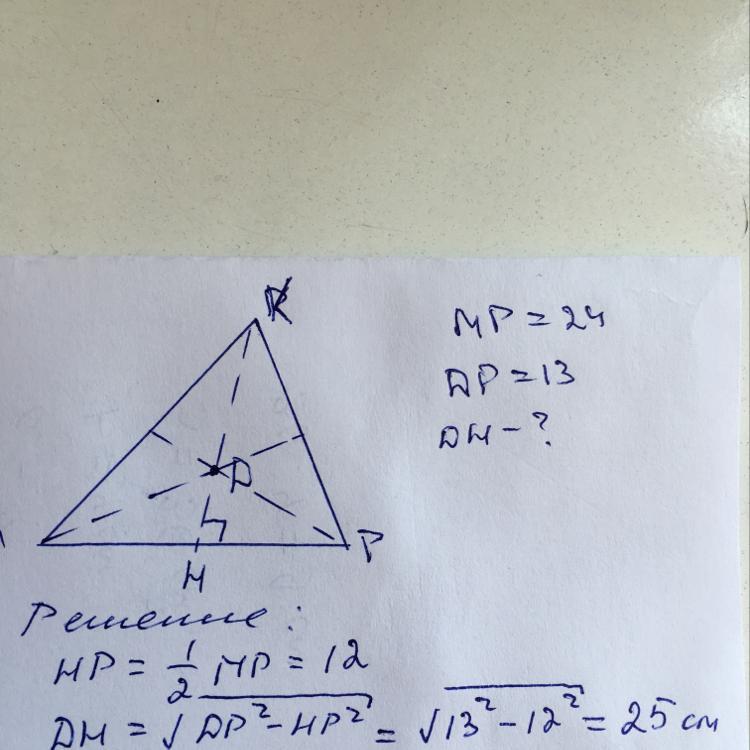 K
MP = 24
DP = 13
DH - ?
D
P
H
Решение:
HP = 1/2 MP = 12
DH = √DP²-HP² = √13²-12² = 25 см